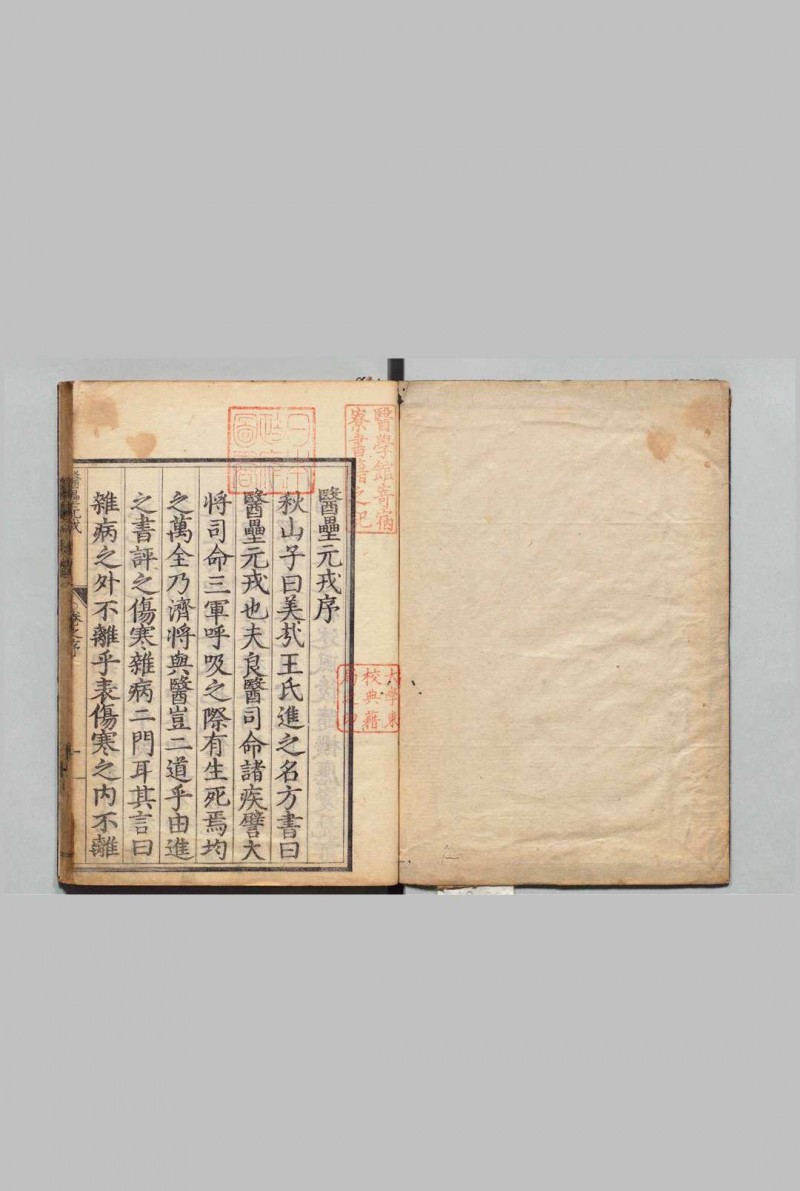 醫壘元戎序
秋山子曰美㢤王氏進之名方書曰
醫壘元戎也夫良醫司命諸疾譬大
將司命三軍呼吸之際有生死焉均
之萬全乃濟將與醫豈二道乎由進
之書評之傷寒雜病二門耳其言曰
雜病之外不離乎表傷寒之内不離
醫學館寄宿
寮書籍之記
大學東
校典籍
局之印
醫壘元戎